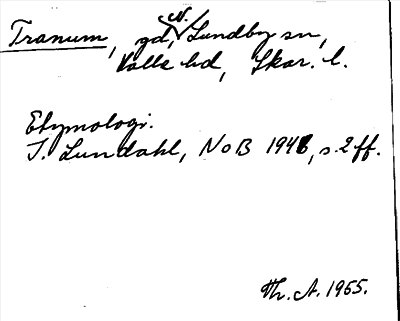 Tranum, gd, N. Lundby sn,
Valle hd, Skar. l.
Etymologi.
I. Lundahl, NoB 1946, s. 2 ff.
Th. A. 1965.